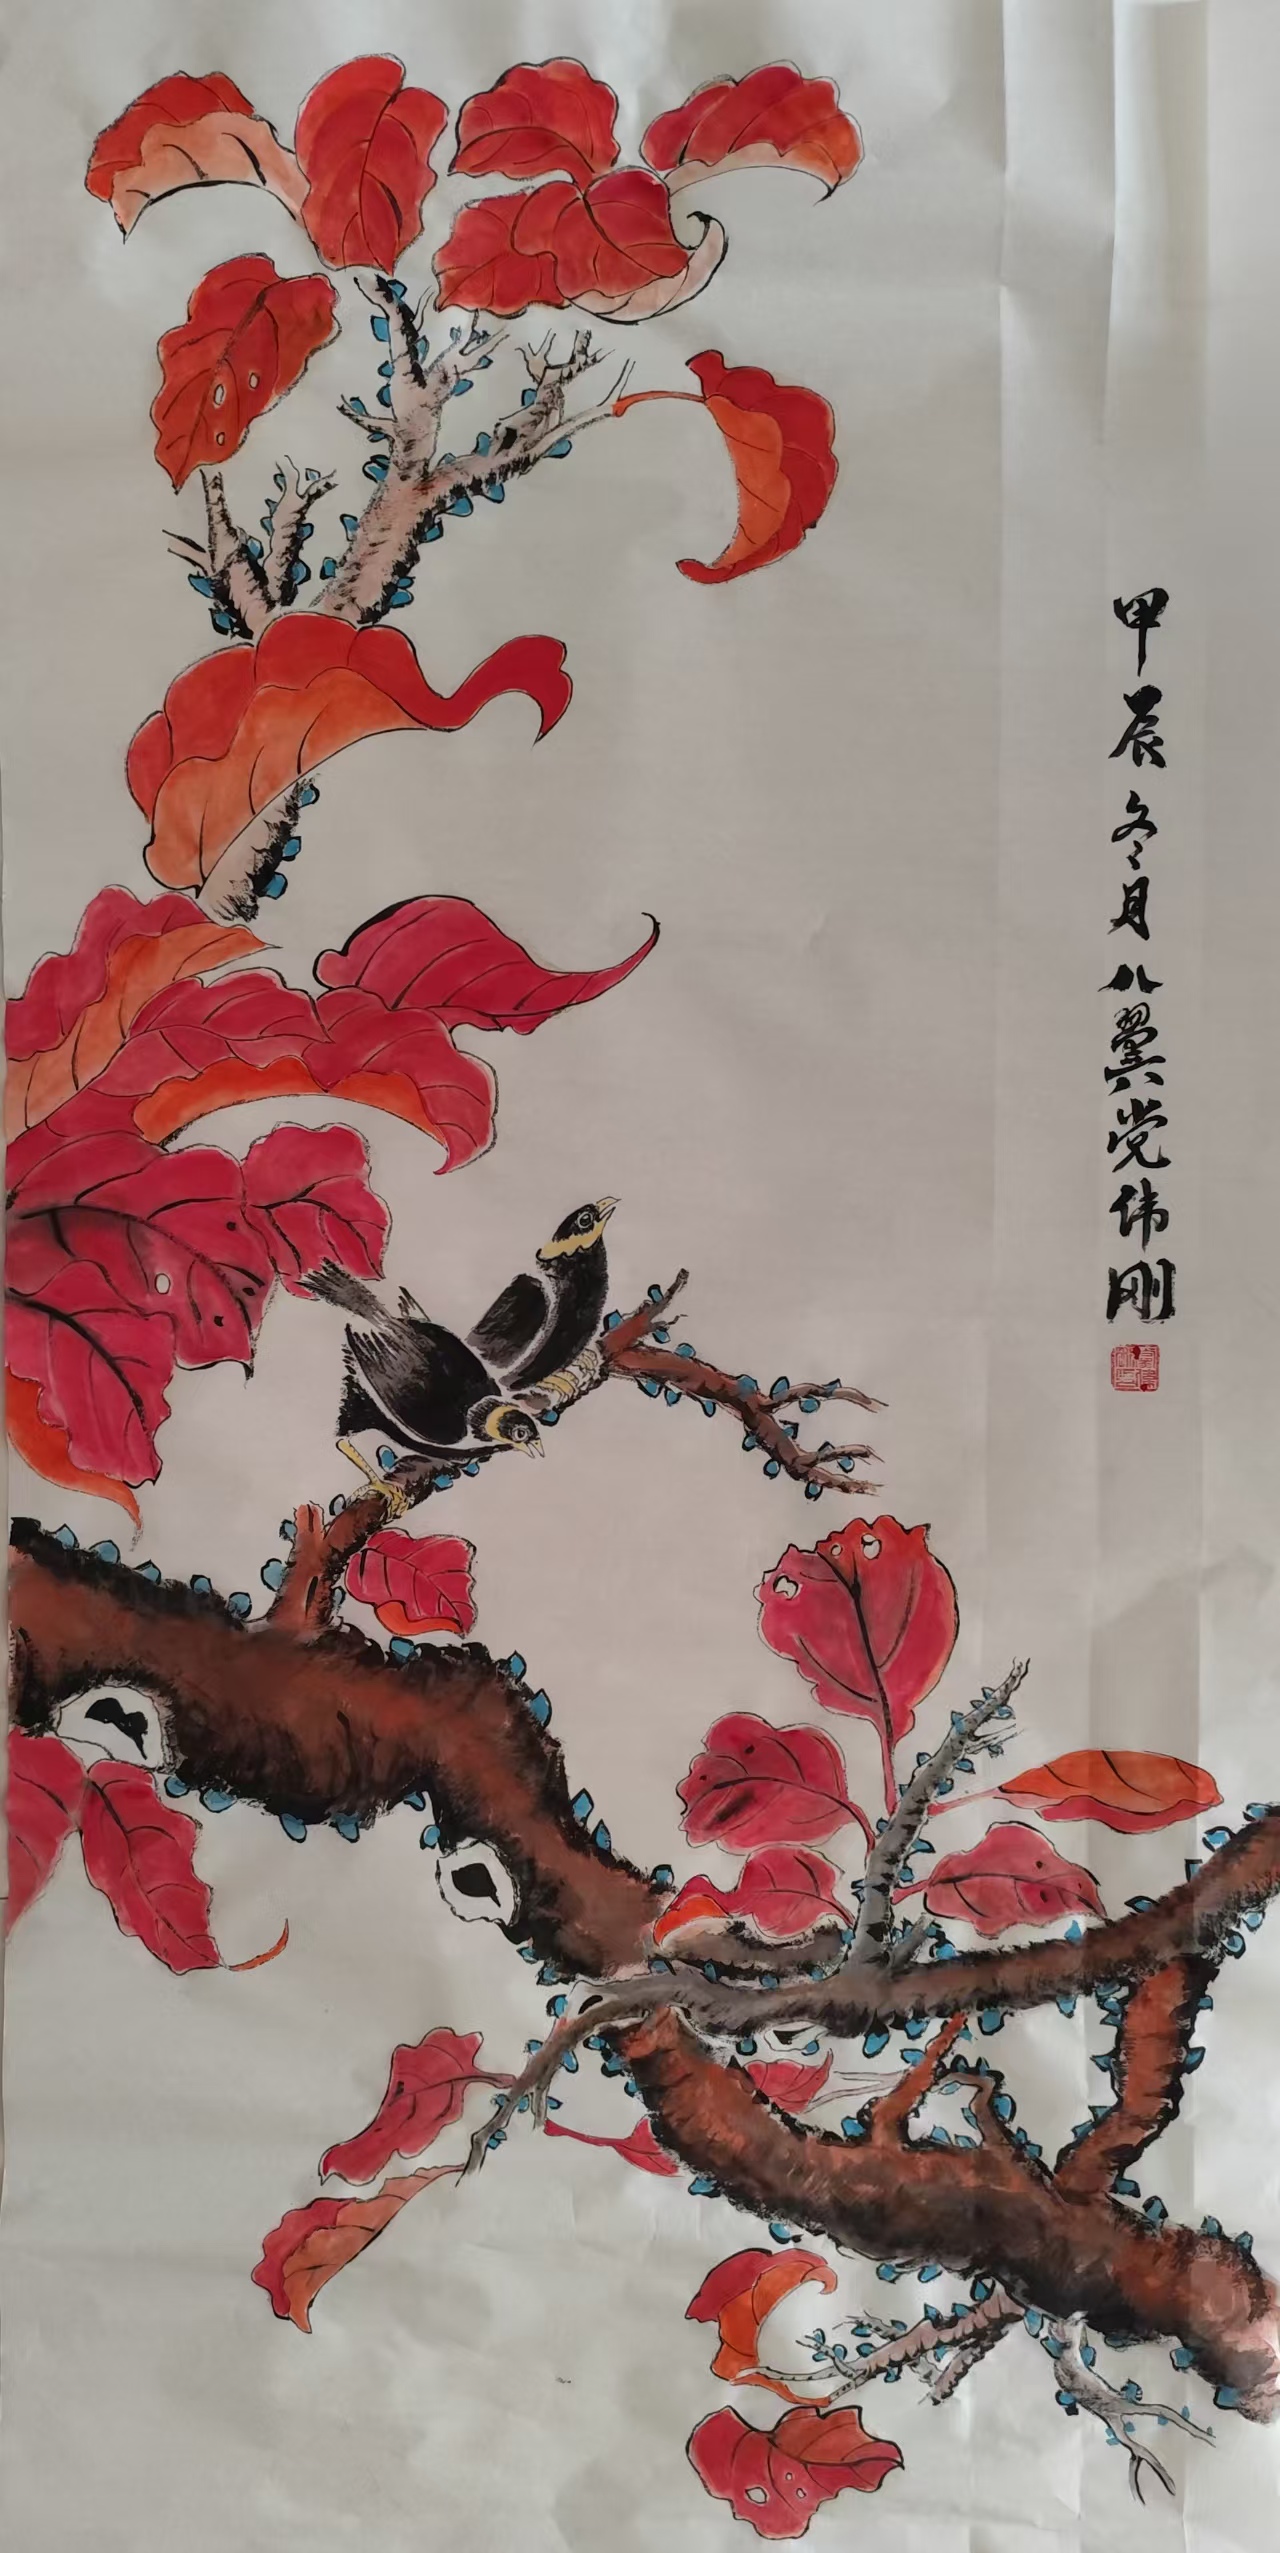 甲辰冬月八翼党伟刚